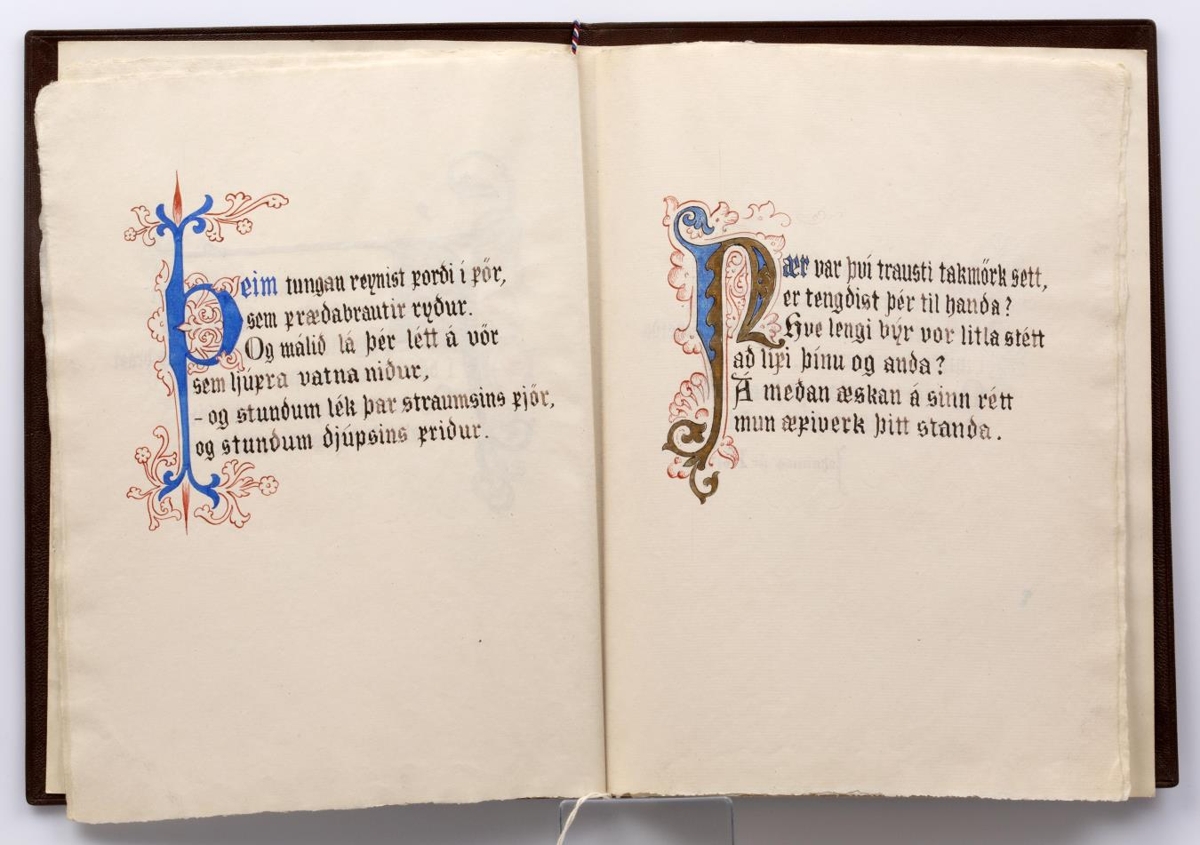 Þeim tungan reynist forði í för,
sem fræðabrautir ryður.
Og málið lá þér létt á vör
sem ljúfra vatna niður,
- og stundum lék þar straumsins fjör,
og stundum djúpsins friður.
Nær var því trausti takmörk sett,
er tengdist þér til handa?
Hve lengi býr vor litla stétt
að lífi þínu og anda?
Á meðan æskan á sinn rétt
mun æfiverk þitt standa.